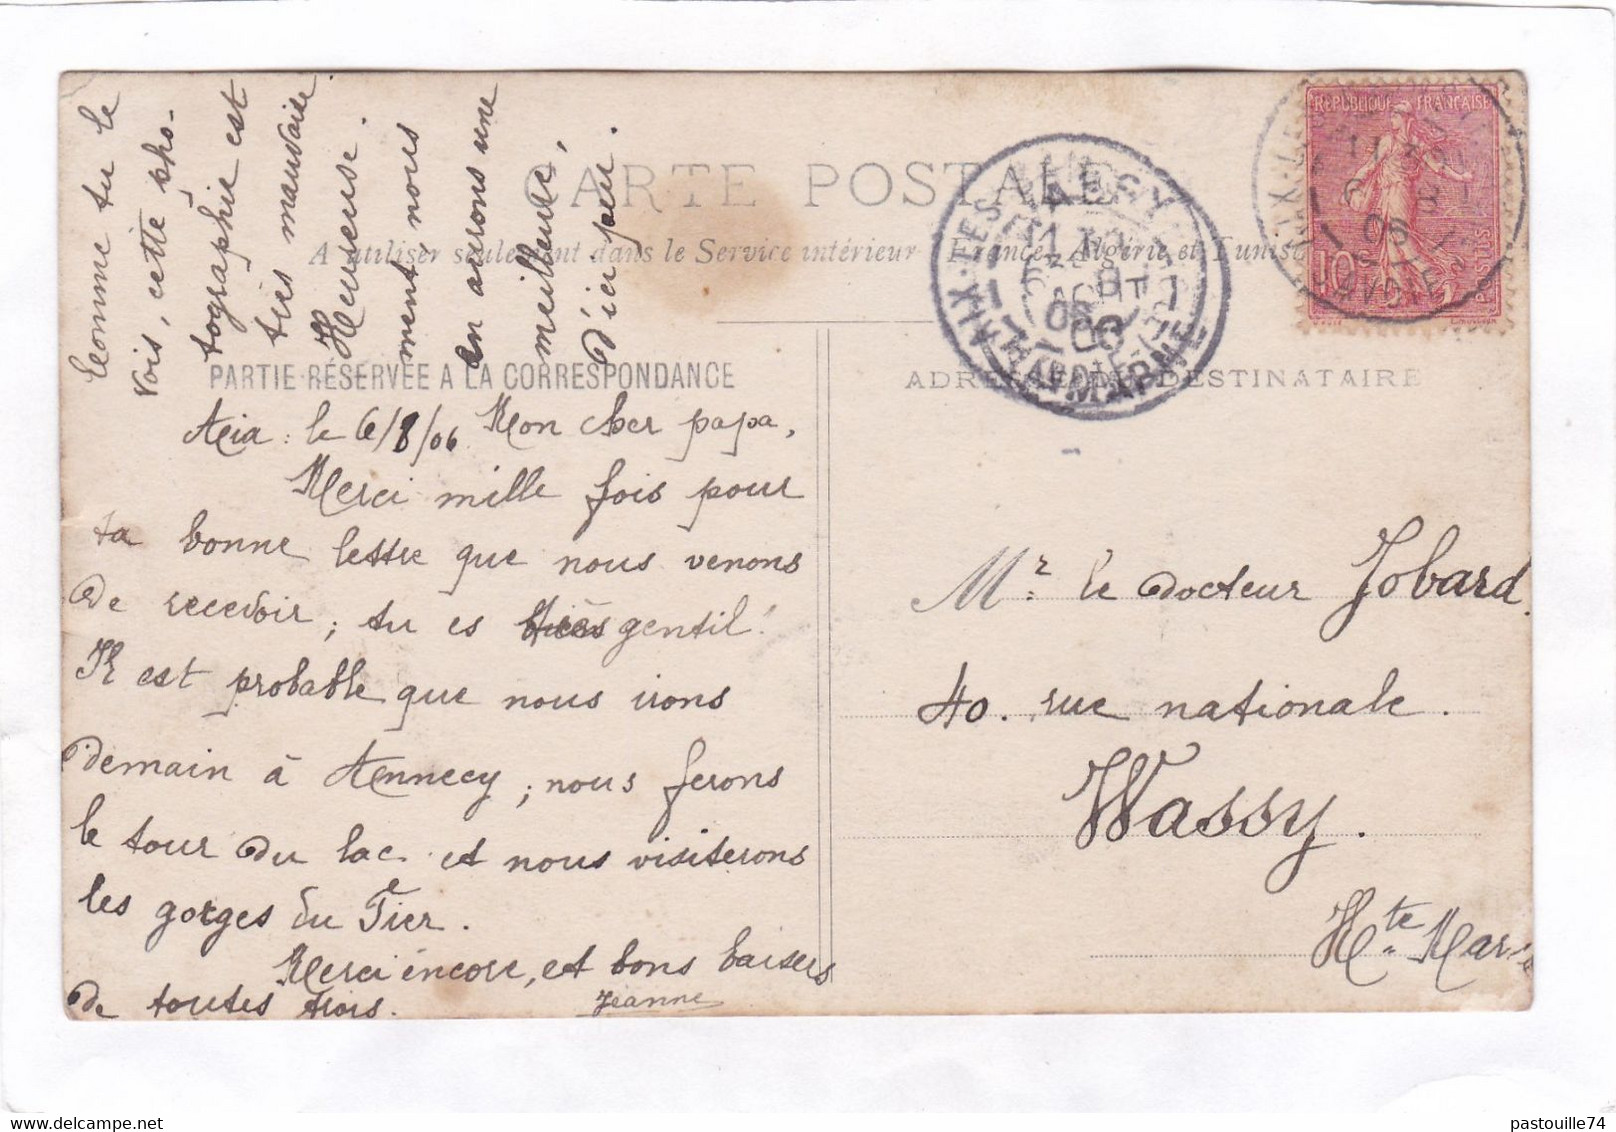 Comme tu le
vois, cette pho-
tographie est
très mauvaise
Heureuse-
ment, nous
en aurons une
meilleure,
d'ici peu.
CARTE POSTALE
A utiliser seulement dans le Service intérieur France, Algérie et Tunis
PARTIE RÉSERVÉE A LA CORRESPONDANCE
Aix : le 6/8/06 Mon cher papa,
Merci mille fois pour
ta bonne lettre que nous venons
de recevoir ; tu es très gentil !
Il est probable que nous irons
demain à Annecy ; nous ferons
le tour du lac et nous visiterons
les gorges du Fier.
Merci encore, et bons baisers
de toutes trois. Jeanne
RÉPUBLIQUE FRANÇAISE
10c
POSTES
WASSY
8
AOUT
06
HTE MARNE
AIX-LES-
ADRESSE DU DESTINATAIRE
Mr le docteur Jobard.
40. rue nationale.
Wassy.
Hte Marne
pastouille74